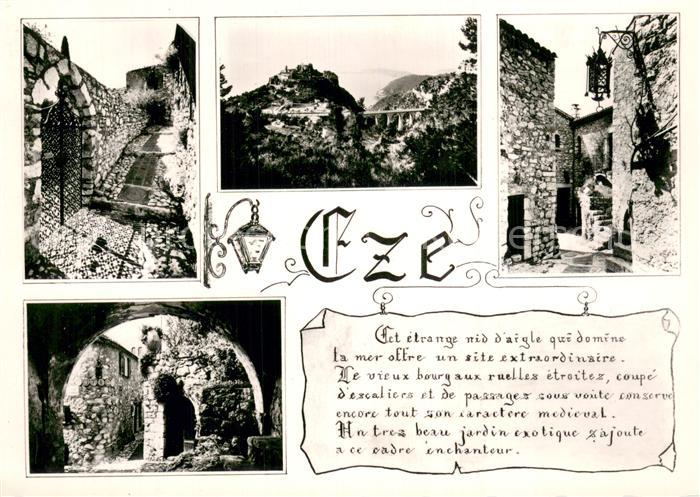 Eze
Cet étrange nid d'aigle qui domine
la mer offre un site extraordinaire.
Le vieux bourg aux ruelles étroites, coupé
d'escaliers et de passages sous voûte conserve
encore tout son caractere medieval.
Un tres beau jardin exotique s'ajoute
a ce cadre enchanteur.